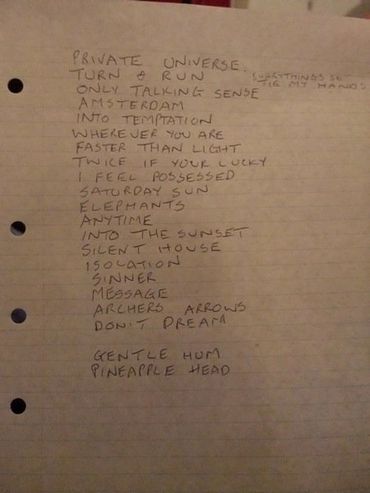 PRIVATE UNIVERSE.
TURN & RUN
TIE MY HANDS
ONLY TALKING SENSE
AMSTERDAM
INTO TEMPTATION
WHEREVER YOU ARE
FASTER THAN LIGHT
TWICE IF YOUR LUCKY
I FEEL POSSESSED
SATURDAY SUN
ELEPHANTS
ANYTIME
INTO THE SUNSET
SILENT HOUSE
ISOLATION
SINNER
MESSAGE
ARCHERS ARROWS
DON'T DREAM
GENTLE HUM
PINEAPPLE HEAD